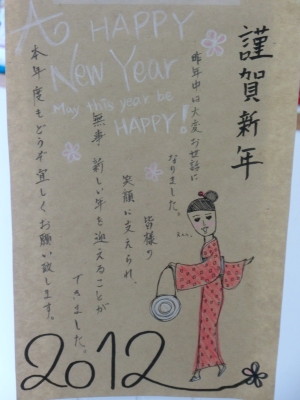 A HAPPY
New Year
May this year be
HAPPY!
謹賀新年
昨年中は大変お世話に
なりました。
皆様の
笑顔に支えられ、
無事新しい年を迎えることが
できました。
本年度もどうぞ宜しくお願い致します。
2012